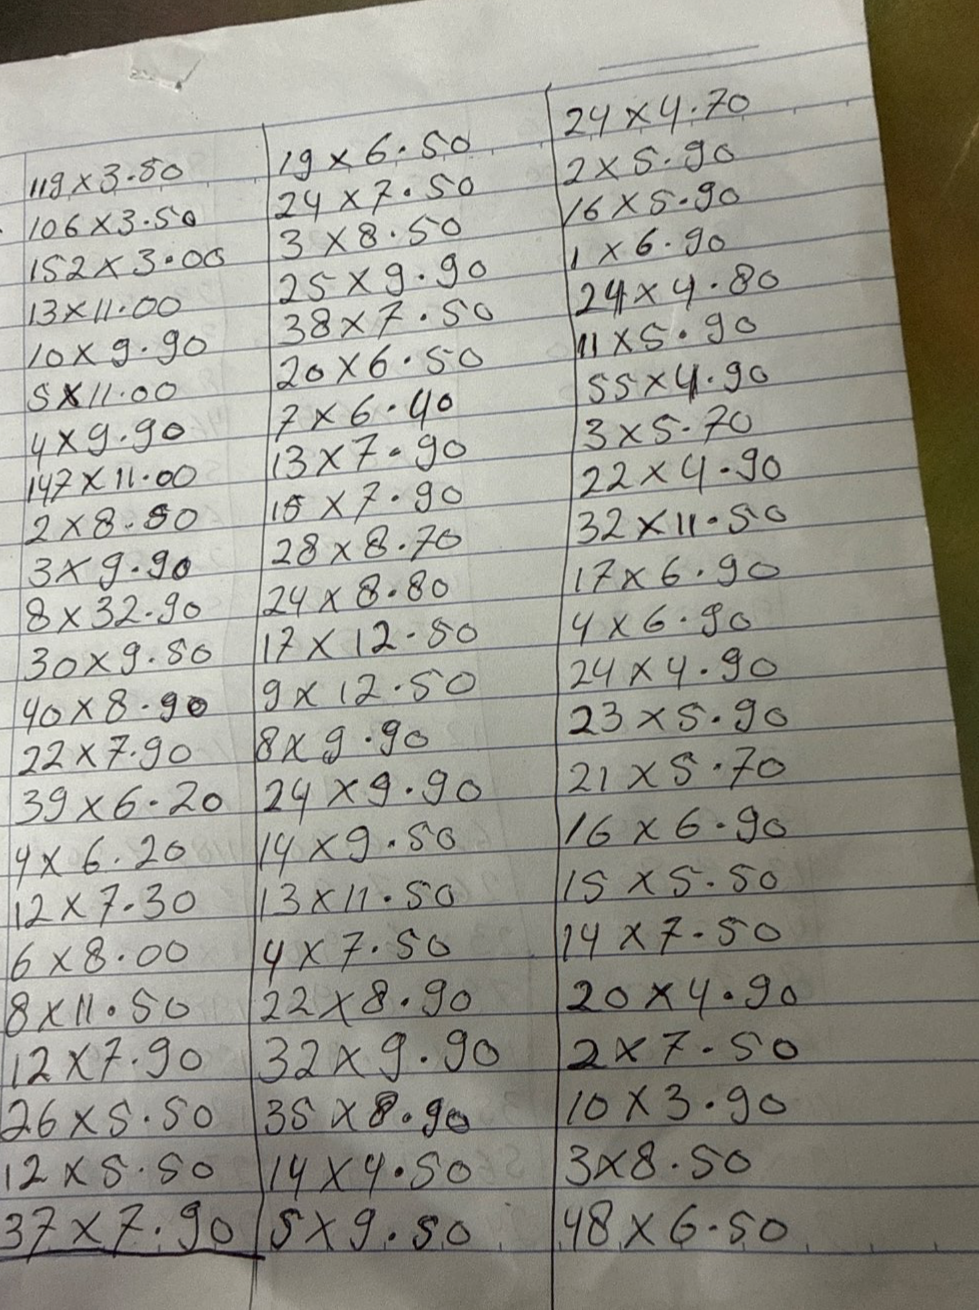 119 x 3.50
106 x 3.50
152 x 3.00
13 x 11.00
10 x 9.90
5 x 11.00
4 x 9.90
147 x 11.00
2 x 8.50
3 x 9.90
8 x 32.90
30 x 9.50
40 x 8.90
22 x 7.90
39 x 6.20
4 x 6.20
12 x 7.30
6 x 8.00
8 x 11.50
12 x 7.90
26 x 5.50
12 x 5.50
37 x 7.90
19 x 6.50
24 x 7.50
3 x 8.50
25 x 9.90
38 x 7.50
20 x 6.50
7 x 6.40
13 x 7.90
15 x 7.90
28 x 8.70
24 x 8.80
17 x 12.50
9 x 12.50
8 x 9.90
24 x 9.90
14 x 9.50
13 x 11.50
4 x 7.50
22 x 8.90
32 x 9.90
35 x 8.90
14 x 4.50
5 x 9.50
24 x 4.70
2 x 5.90
16 x 5.90
1 x 6.90
24 x 4.80
11 x 5.90
55 x 4.90
3 x 5.70
22 x 4.90
32 x 11.50
17 x 6.90
4 x 6.90
24 x 4.90
23 x 5.90
21 x 5.70
16 x 6.90
15 x 5.50
14 x 7.50
20 x 4.90
2 x 7.50
10 x 3.90
3 x 8.50
48 x 6.50